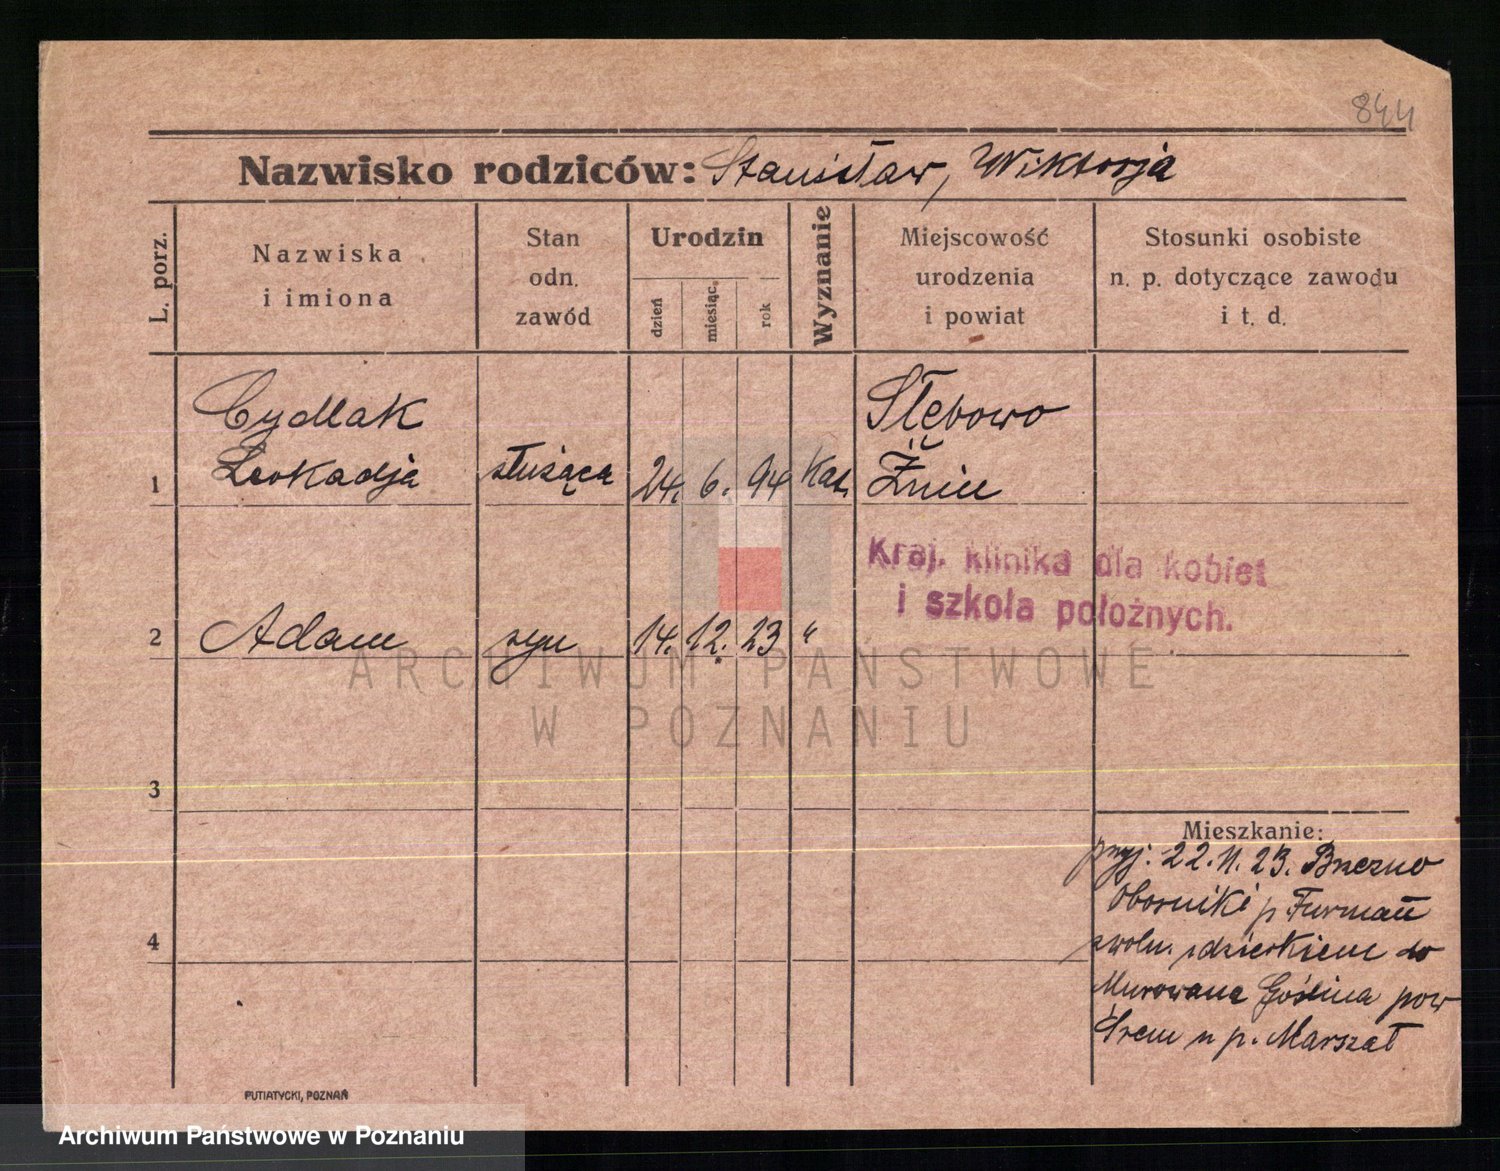 844
Nazwisko rodziców: Stanisław, Wiktorja
L. porz.
Nazwiska
i imiona
Stan
odn.
zawód
Urodzin
dzień
miesiąc
rok
Wyznanie
Miejscowość
urodzenia
i powiat
Stosunki osobiste
n. p. dotyczące zawodu
i t. d.
Cydlak Słębowo
1 Leokadja służąca 24. 6. 94 Kat. Żnin
Kraj. klinika dla kobiet
i szkoła położnych.
2 Adam syn 14. 12. 23 "
3
Mieszkanie:
przyj. 22.11.23. Brzezno
Oborniki p. Furmań
4
zwoln. z dzieckiem do
Murowana Goślina pow
Śrem u p. Marszał
PUTIATYCKI, POZNAŃ
ARCHIWUM PAŃSTWOWE
W POZNANIU
Archiwum Państwowe w Poznaniu